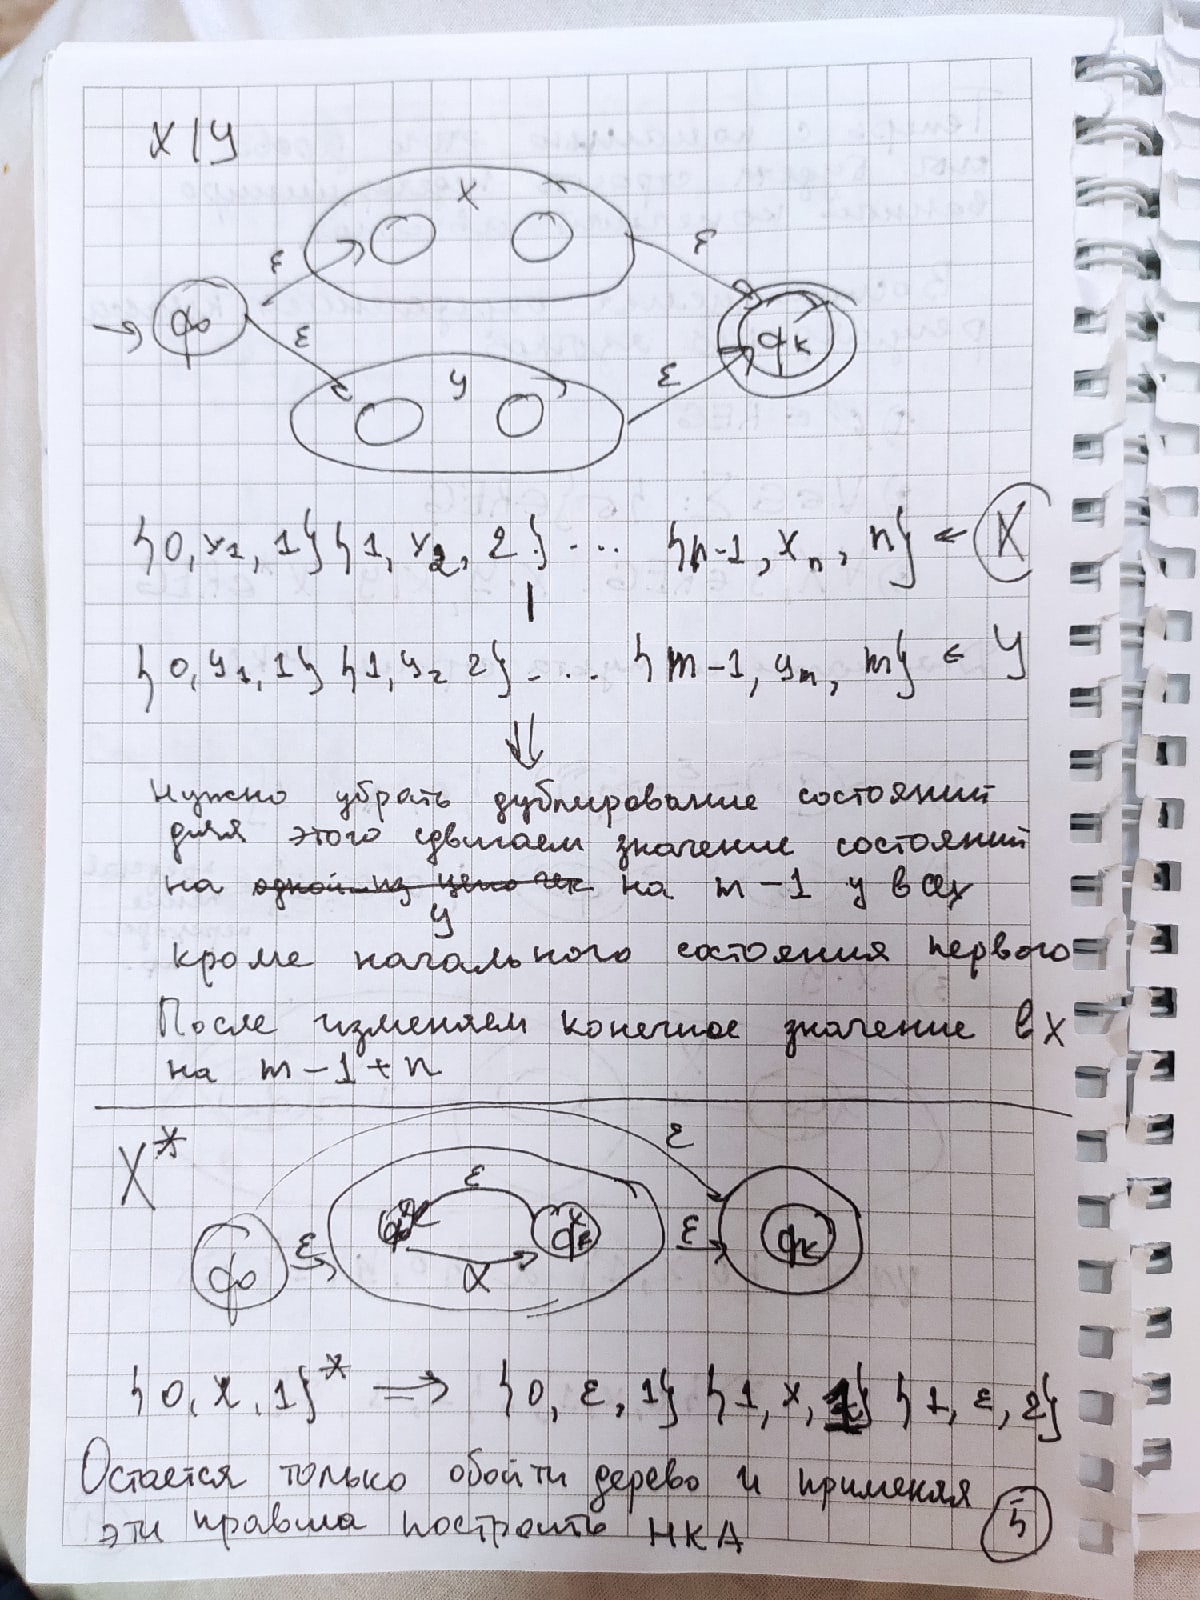 X|Y
X
ε
ε
q₀
ε
qк
y
ε
{0, x₁, 1} {1, x₂, 2} ... {n-1, xₙ, n} ← X
|
{0, y₁, 1} {1, y₂ 2} ... {m-1, yₘ, m} ← y
⇓
Нужно убрать дублирование состояний
для этого сдвигаем значение состояний
на одной из цепочек на m-1 у всех
y
кроме начального состояния первого
После изменяем конечное значение в X
на m-1+n
X*
ε
ε
q₀
ε
α
ε
qк
{0, x, 1}* ⇒ {0, ε, 1} {1, x, 1} {1, ε, 2}
Остается только обойти дерево и применяя
эти правила построить НКА
5